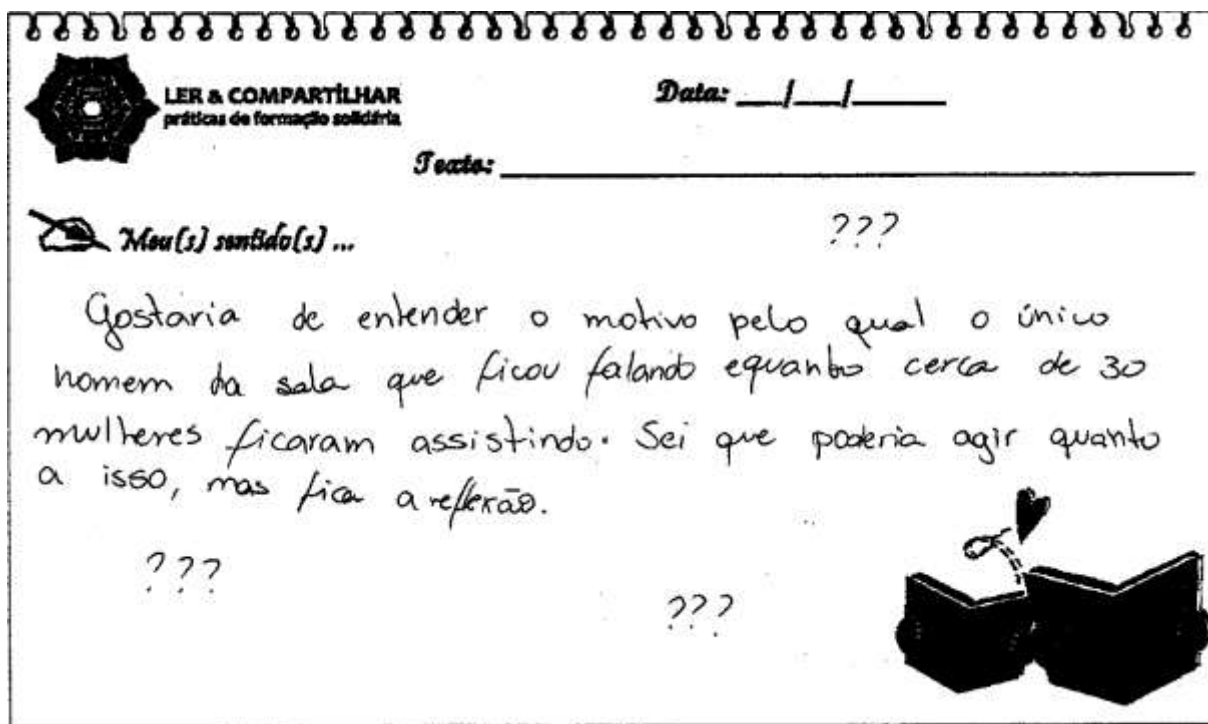 LER & COMPARTILHAR
práticas de formação solidária
Data: ___/___/______
Texto: ______________________
Meu(s) sentido(s) ...
???
Gostaria de entender o motivo pelo qual o único
homem da sala que ficou falando equanto cerca de 30
mulheres ficaram assistindo. Sei que poderia agir quanto
a isso, mas fica a reflexão.
???
???